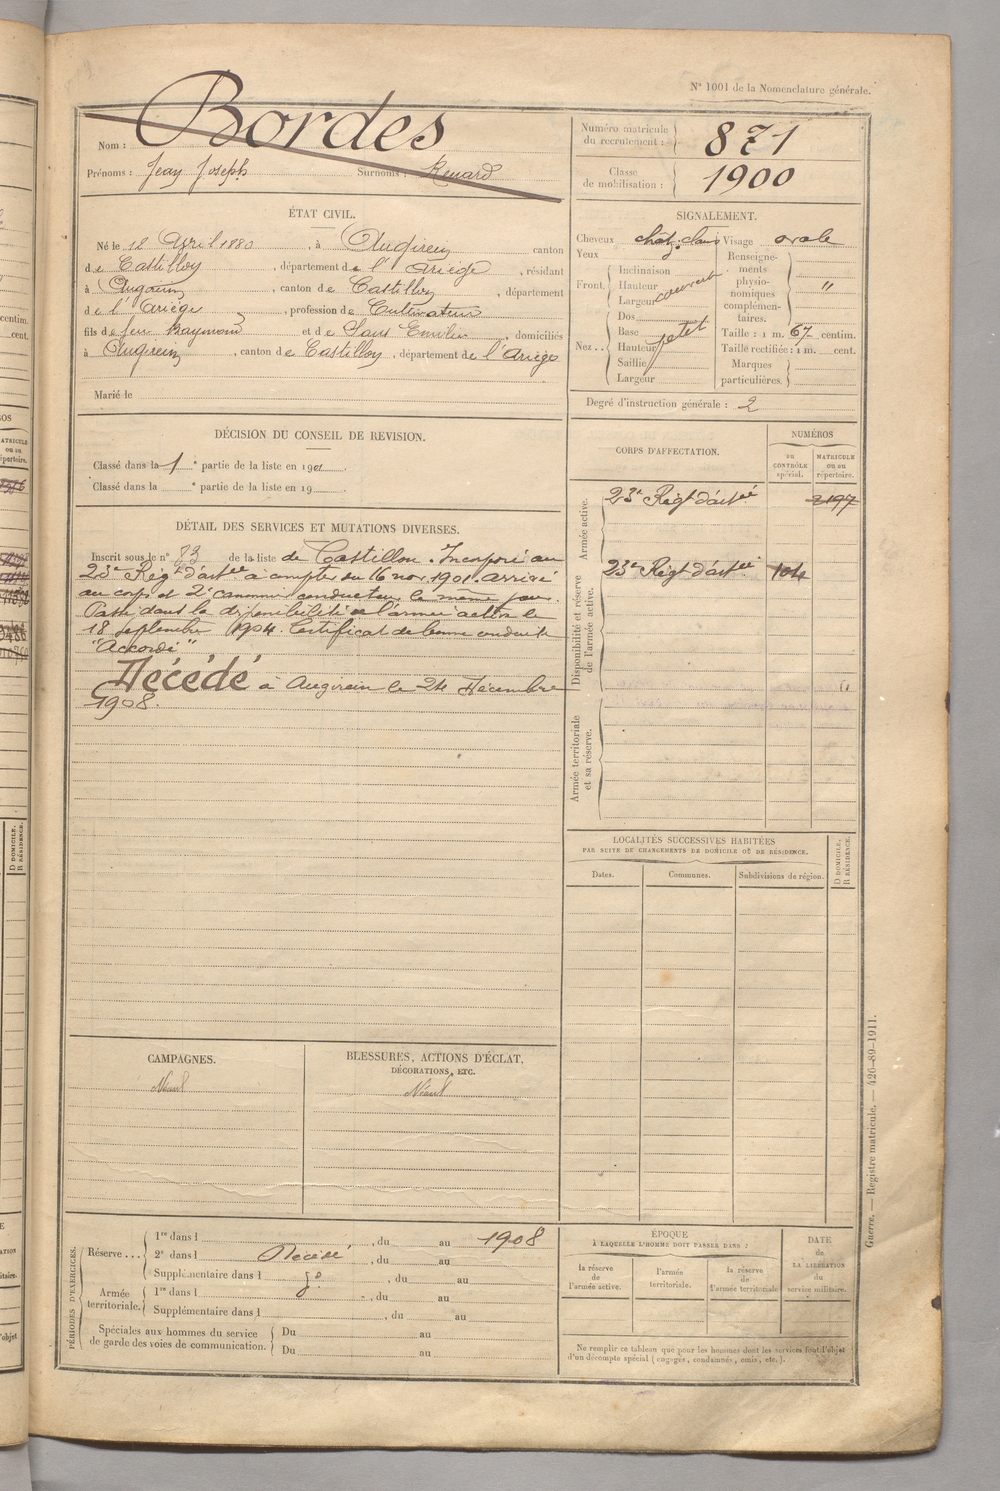 N° 1001 de la Nomenclature générale.
Nom : Bordes
Prénoms : Jean Joseph Surnoms : Renard
Numéro matricule du recrutement : 871
Classe de mobilisation : 1900
ÉTAT CIVIL.
Né le 12 Avril 1880, à Augirein canton
de Castillon, département de l'Ariège, résidant
à Augirein, canton de Castillon, département
de l'Ariège, profession de Cultivateur
fils de feu Raymond et de Sans Emilie, domiciliés
à Augirein, canton de Castillon, département de l'Ariège
Marié le
SIGNALEMENT.
Cheveux chât. clairs Visage ovale
Yeux
Front. Inclinaison
Hauteur
Largeur couvert
Nez.. Dos
Base
Hauteur petit
Saillie
Largeur
Renseignements physionomiques complémentaires. "
Taille : 1 m. 67 centim.
Taille rectifiée : 1 m. cent.
Marques particulières.
Degré d'instruction générale : 2
DÉCISION DU CONSEIL DE REVISION.
Classé dans la 1 e partie de la liste en 1901
Classé dans la e partie de la liste en 19
DÉTAIL DES SERVICES ET MUTATIONS DIVERSES.
Inscrit sous le n° 83 de la liste de Castillon. Incorporé au
23e Régt d'artie à compter du 16 nov. 1901. arrivé
au corps et 2e canonnier conducteur le même jour.
Passé dans la disponibilité de l'armée active le
18 septembre 1904. Certificat de bonne conduite
"Accordé"
Décédé à Augirein le 24 Décembre
1908.
CORPS D'AFFECTATION.
NUMÉROS
DU CONTRÔLE spécial.
MATRICULE OU DU répertoire.
Armée active.
23e Régt d'artie 2197
Disponibilité et réserve de l'armée active.
23e Régt d'artie 104
Armée territoriale et sa réserve.
LOCALITÉS SUCCESSIVES HABITÉES
PAR SUITE DE CHANGEMENTS DE DOMICILE OU DE RÉSIDENCE.
D DOMICILE.
R RÉSIDENCE.
Dates. Communes. Subdivisions de région.
CAMPAGNES.
Néant
BLESSURES, ACTIONS D'ÉCLAT,
DÉCORATIONS, ETC.
Néant
PÉRIODES D'EXERCICES.
Réserve ... 1re dans l , du au 1908
2e dans l Décédé , du au
Supplémentaire dans l , du au
Armée territoriale. 1re dans l , du au
Supplémentaire dans l , du au
Spéciales aux hommes du service
de garde des voies de communication. Du au
Du au
ÉPOQUE
À LAQUELLE L'HOMME DOIT PASSER DANS :
la réserve de l'armée active.
l'armée territoriale.
la réserve de l'armée territoriale
DATE de LA LIBÉRATION du service militaire.
Ne remplir ce tableau que pour les hommes dont les services font l'objet
d'un décompte spécial (engagés, condamnés, omis, etc.).
Guerre. — Registre matricule. — 426-89-1911.